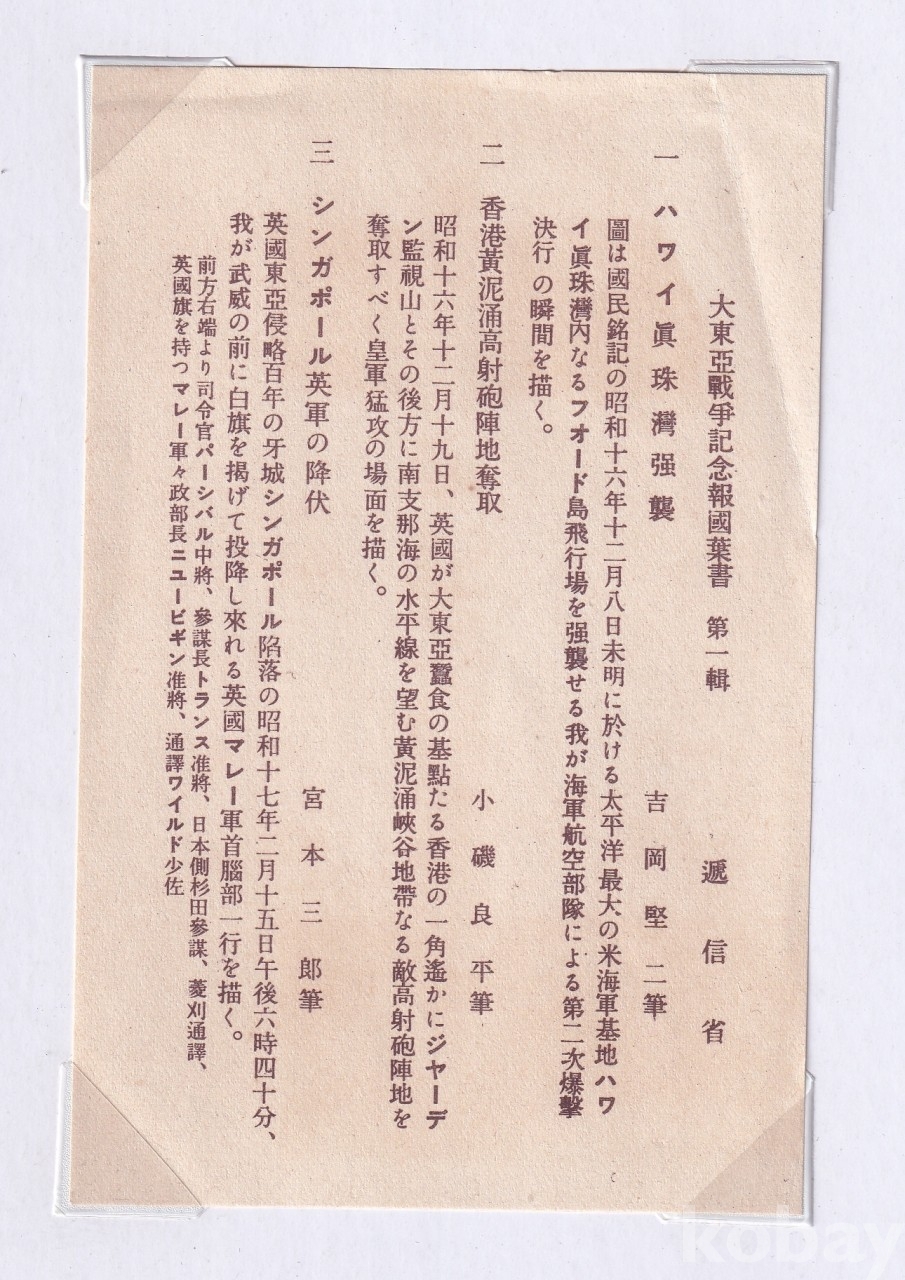 大東亞戰爭記念報國葉書　第一輯　遞信省
一　ハワイ眞珠灣强襲　吉岡堅二筆
圖は國民銘記の昭和十六年十二月八日未明に於ける太平洋最大の米海軍基地ハワ
イ眞珠灣內なるフオード島飛行場を强襲せる我が海軍航空部隊による第二次爆擊
決行の瞬間を描く。
二　香港黃泥涌高射砲陣地奪取　小磯良平筆
昭和十六年十二月十九日、英國が大東亞蠶食の基點たる香港の一角遙かにジヤーデ
ン監視山とその後方に南支那海の水平線を望む黃泥涌峽谷地帶なる敵高射砲陣地を
奪取すべく皇軍猛攻の場面を描く。
三　シンガポール英軍の降伏　宮本三郎筆
英國東亞侵略百年の牙城シンガポール陷落の昭和十七年二月十五日午後六時四十分、
我が武威の前に白旗を揭げて投降し來れる英國マレー軍首腦部一行を描く。
前方右端より司令官パーシバル中將、參謀長トランス准將、日本側杉田參謀、菱刈通譯、
英國旗を持つマレー軍々政部長ニユービギン准將、通譯ワイルド少佐
kobay